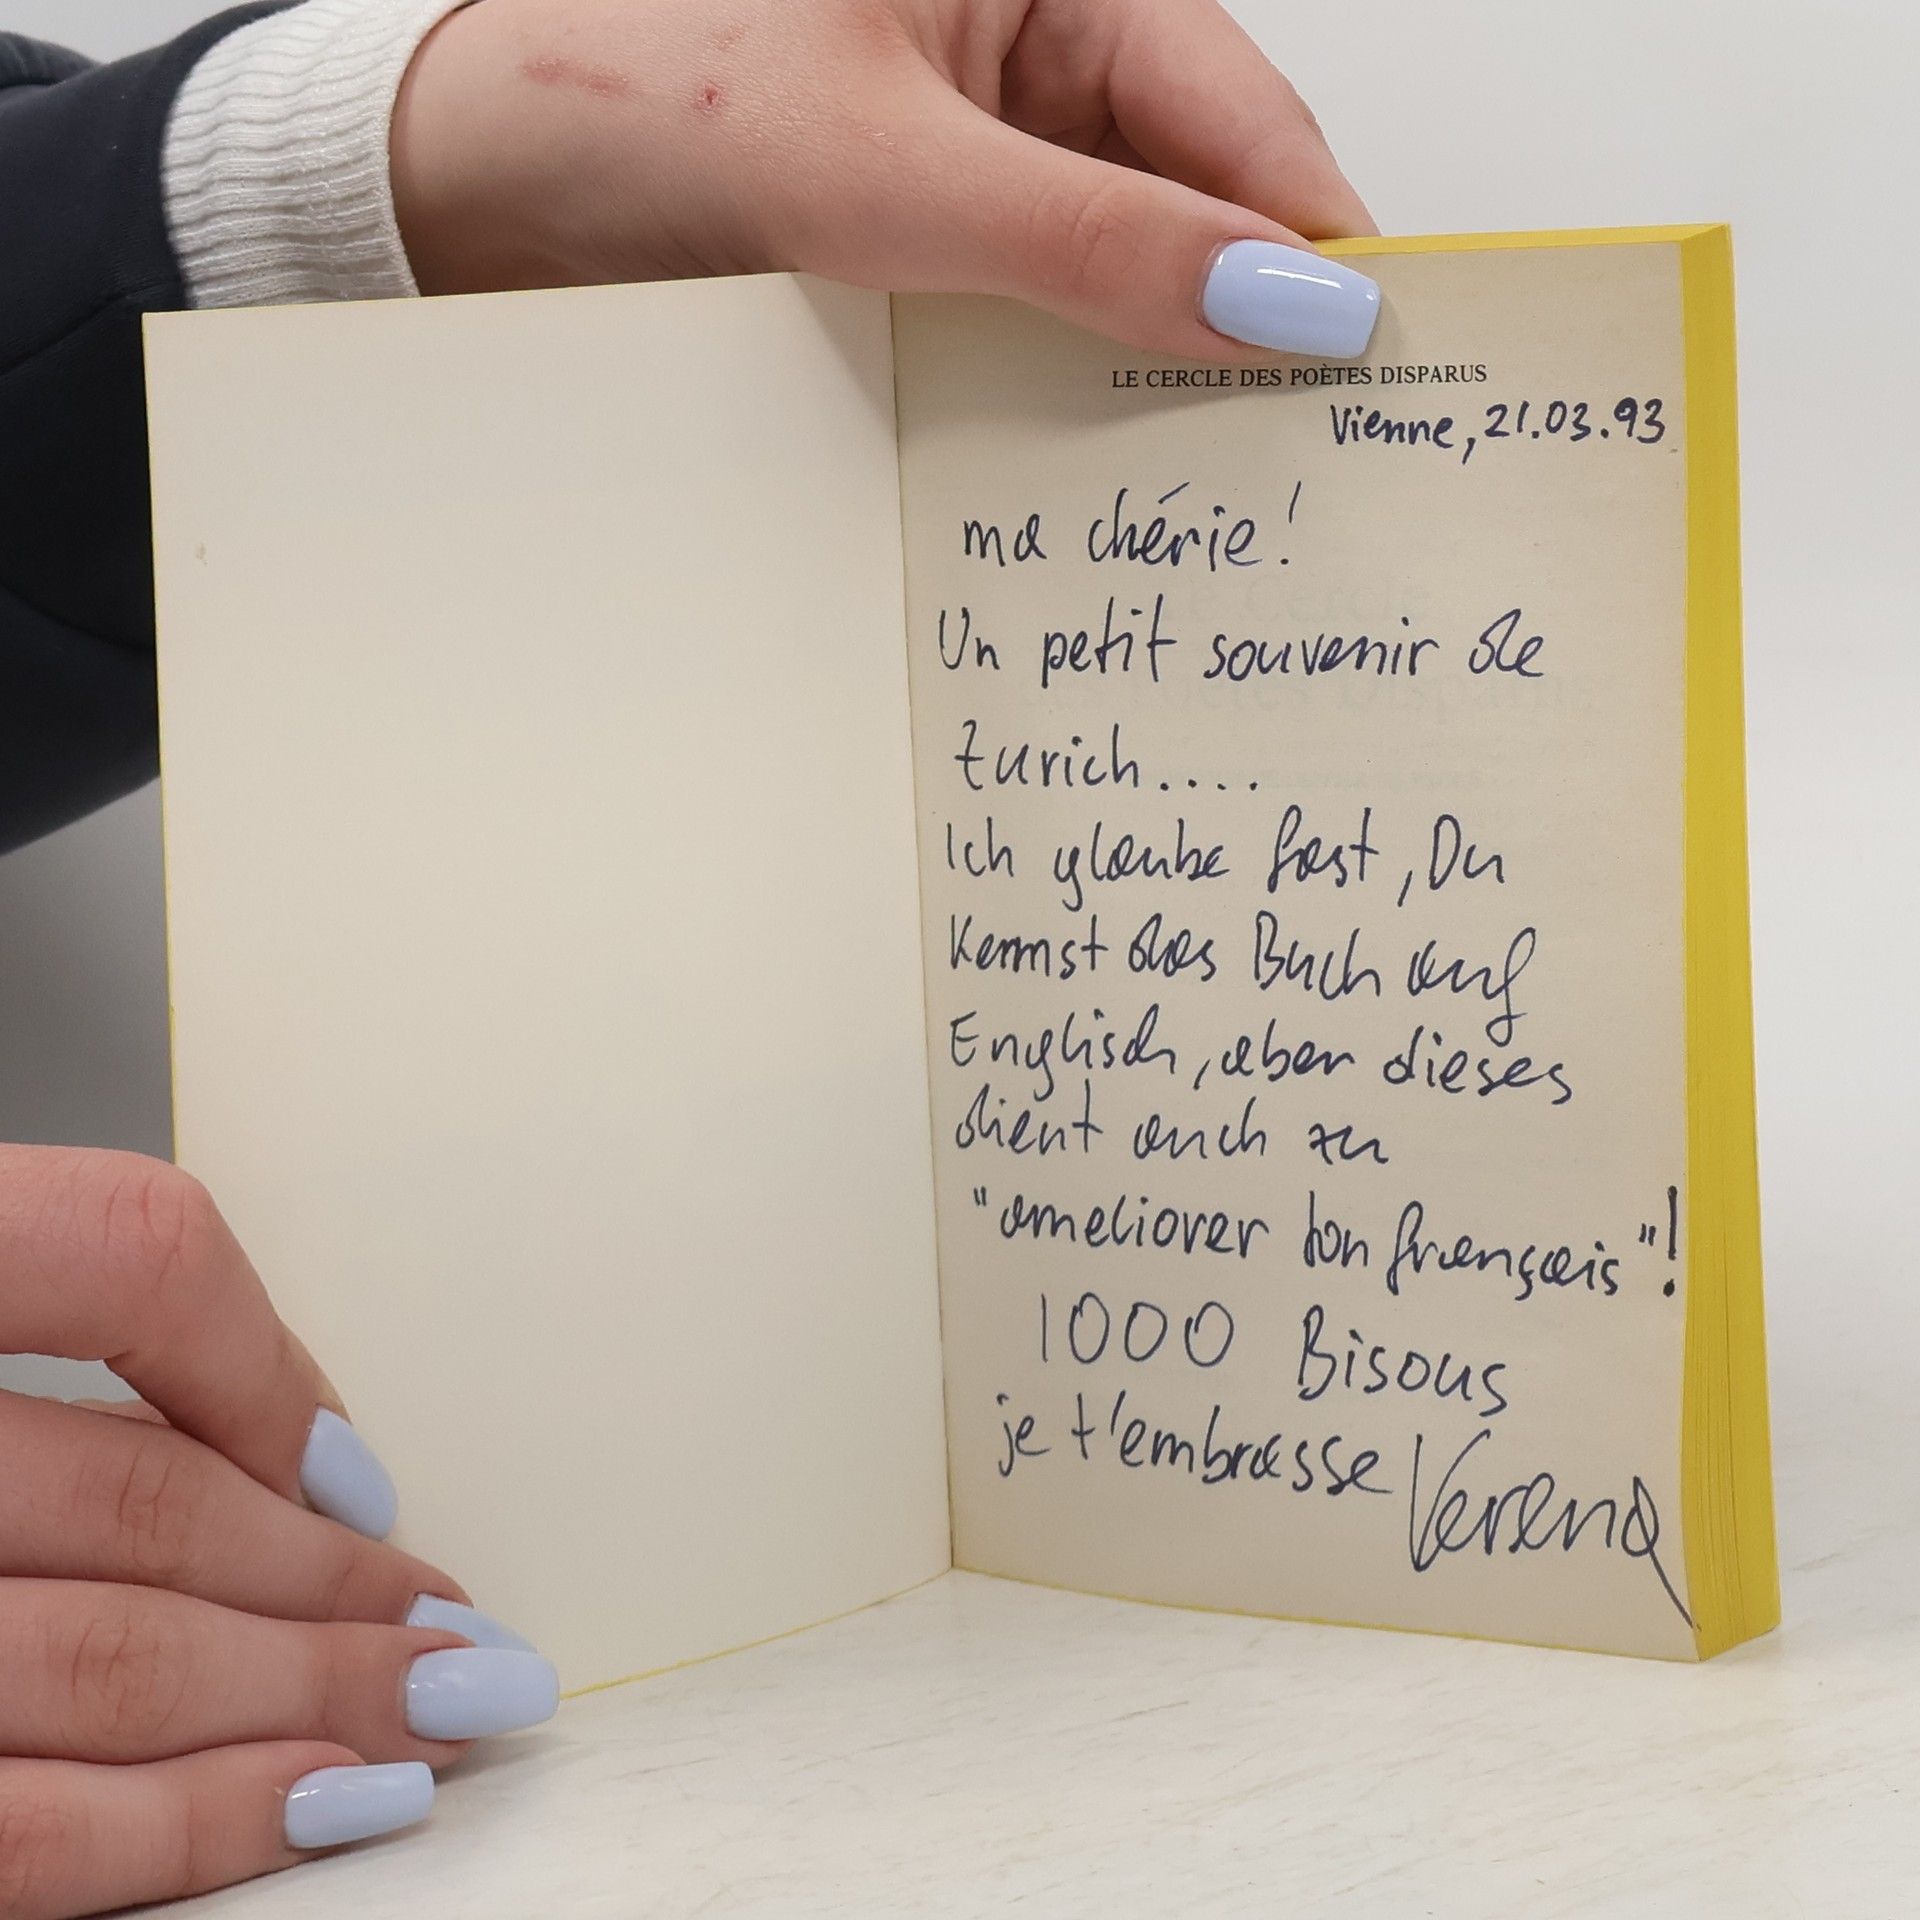 LE CERCLE DES POÈTES DISPARUS
Vienne, 21.03.93
ma chérie!
Un petit souvenir de
Zurich....
Ich glaube fast, Du
kennst das Buch auf
Englisch, aber dieses
dient auch zu
"ameliorer ton français"!
1000 Bisous
je t'embrasse Verena